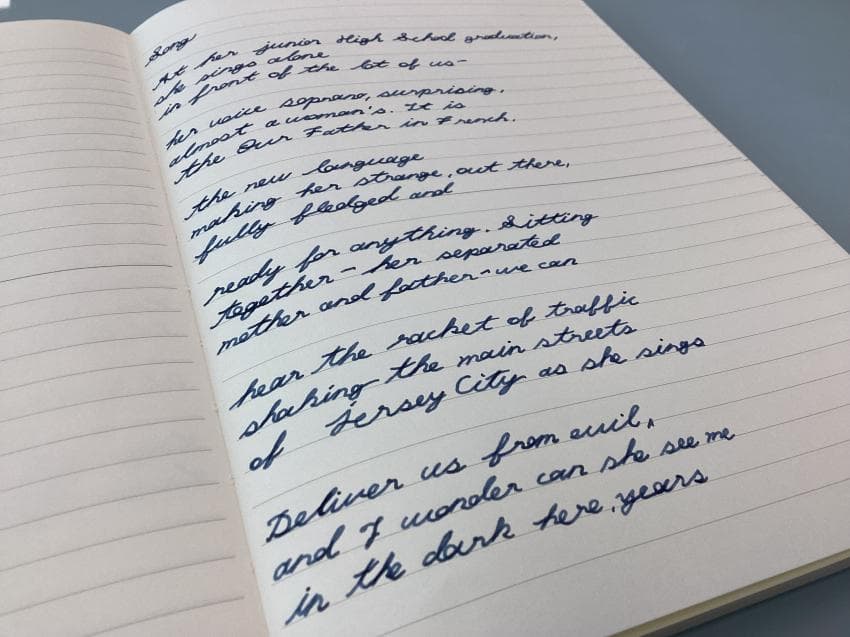 Song
At her junior High School graduation,
she sings alone
in front of the lot of us-
her voice soprano, surprising,
almost a woman's. It is
the Our Father in French.
the new language
making her strange, out there,
fully fledged and
ready for anything. Sitting
together - her separated
mother and father - we can
hear the racket of traffic
shaking the main streets
of Jersey City as she sings
Deliver us from evil,
and I wonder can she see me
in the dark here, years